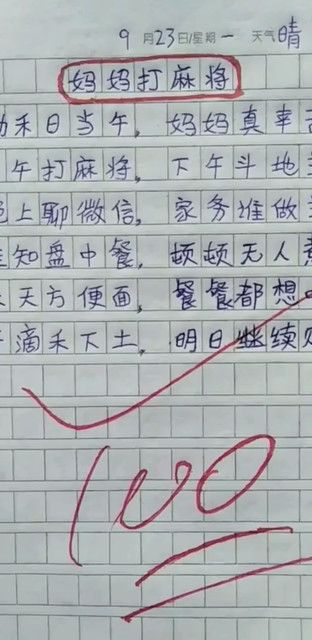 9月23日/星期一 天气晴
妈妈打麻将
禾日当午，妈妈真辛
午打麻将，下午斗地
上聊微信，家务谁做
知盘中餐，顿顿无人
天方便面，餐餐都想
滴禾下土，明日继续
100